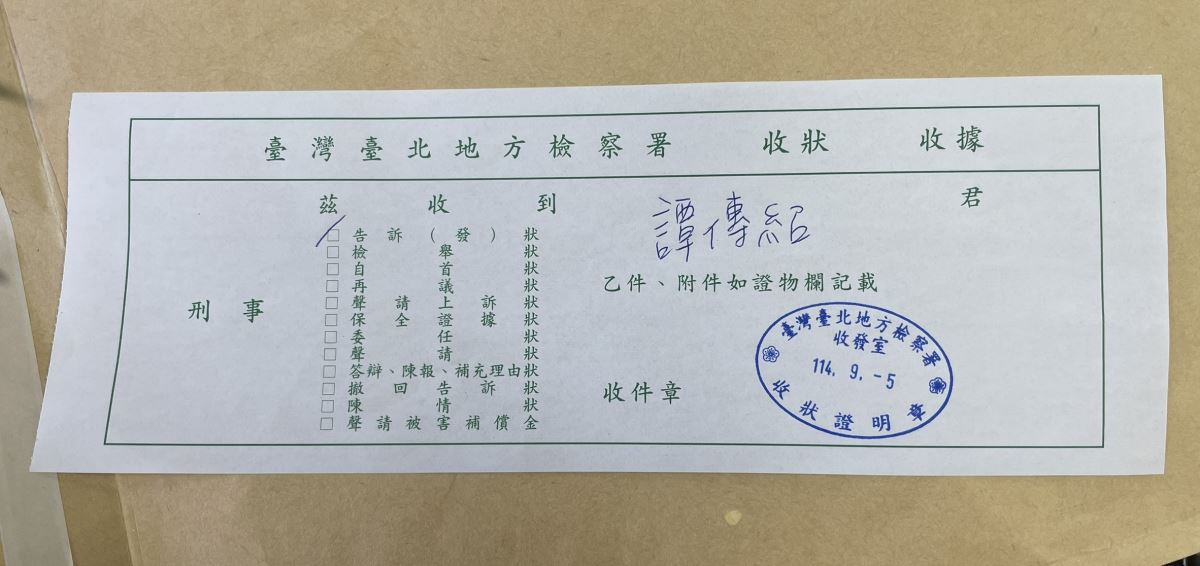 臺灣臺北地方檢察署 收狀 收據
茲收到 譚傳紹 君
刑事
□告訴(發)狀
□檢舉狀
□自首狀
□再議狀
□聲請上訴狀
□保全證據狀
□委任狀
□聲請狀
□答辯、陳報、補充理由狀
□撤回告訴狀
□陳情狀
□聲請被害補償金
乙件、附件如證物欄記載
收件章
臺灣臺北地方檢察署
收發室
114. 9. -5
收狀證明章